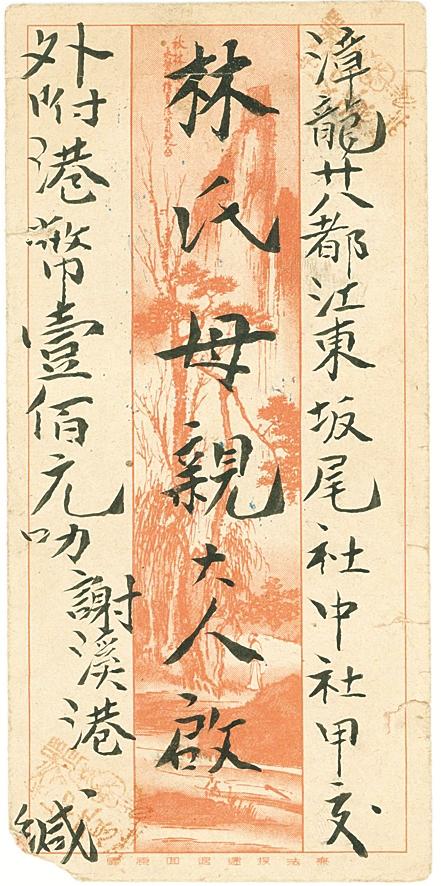 漳龍廿八都江東坂尾社中社甲交
林氏母親大人啟
外附港幣壹佰元叻謝溪港緘